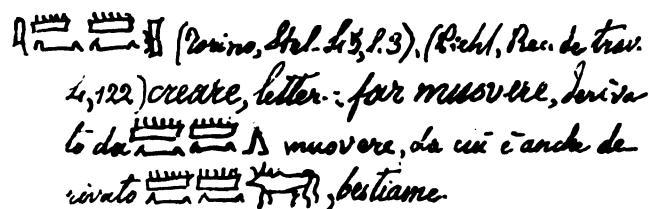 𓋴𓏠𓈖𓏠𓈖 (Torino, Stel. 45, l. 3), (Piehl, Rec. de trav.
4, 122) creare, letter.: far muovere, deriva
to da 𓏠𓈖𓏠𓈖𓂻 muovere, da cui è anche de
rivato 𓏠𓈖𓏠𓈖𓃒, bestiame.